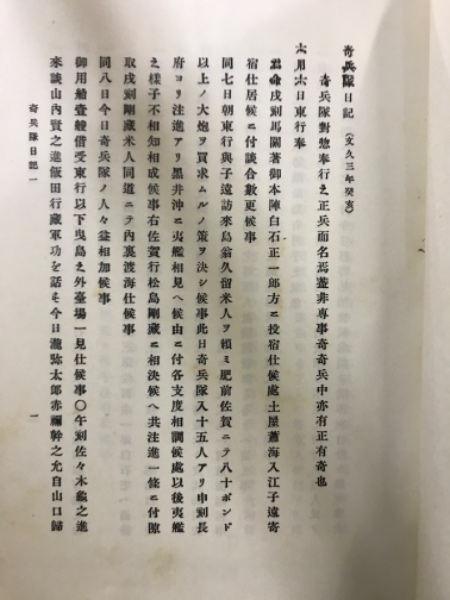 奇兵隊日記（文久三年癸亥）
奇兵隊對惣奉行之正兵而名焉蓋非専事奇奇兵中亦有正有奇也
六月六日東行奉
君命戌刻馬關著御本陣白石正一郎方ニ投宿仕候處土屋蕭海入江子遠寄
宿仕居候ニ付談合數更候事
同七日朝東行與子遠訪來島翁久留米人ヲ頼ミ肥前佐賀ニテ八十ポンド
以上ノ大炮ヲ買求ムルノ策ヲ決シ候事此日奇兵隊入十五人アリ申刻長
府ヨリ注進アリ黒井沖ニ夷艦相見ヘ候由ニ付各支度相調候處以後夷艦
之様子不相知相成候事右佐賀行松島剛藏ニ相決候ヘ共注進一條ニ付隙
取戌刻剛藏米人同道ニテ内裏渡海仕候事
同八日今日奇兵隊ノ人々益相加候事
御用船壹艘借受東行以下曳島之外臺場一見仕候事〇午刻佐々木龜之進
來談山内賢之進飯田行藏軍功を話す今日瀧弥太郎赤禰幹之允自山口歸
奇兵隊日記一
一